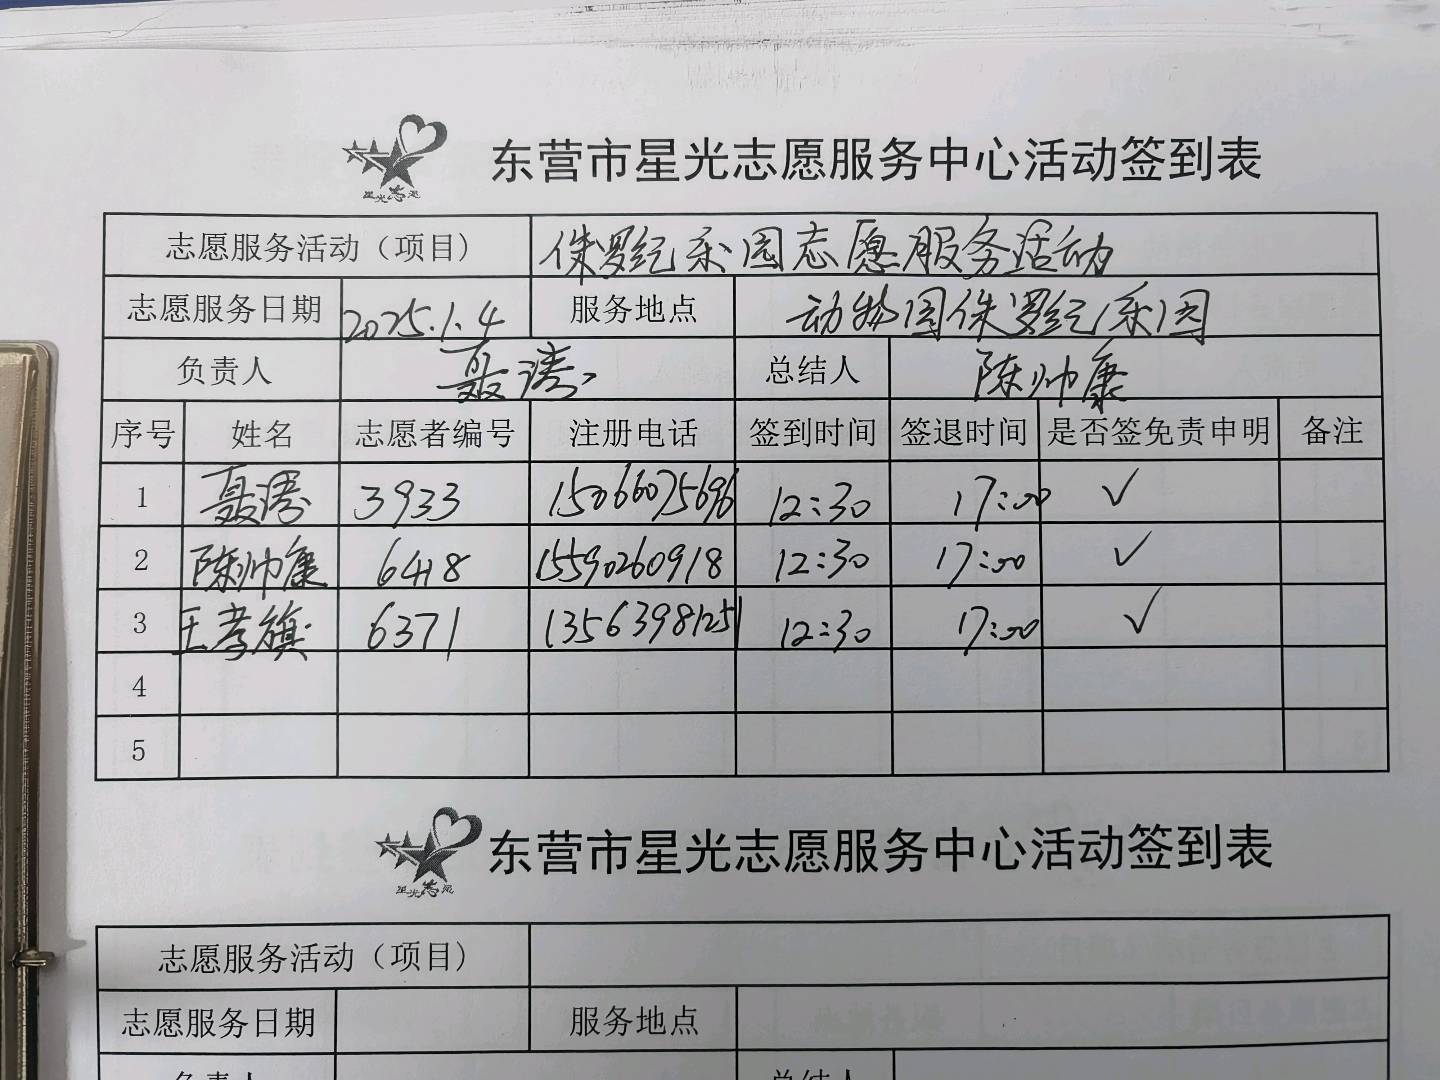 星光志愿
东营市星光志愿服务中心活动签到表
志愿服务活动（项目） 侏罗纪乐园志愿服务活动
志愿服务日期 2025.1.4 服务地点 动物园侏罗纪乐园
负责人 聂涛 总结人 陈帅康
序号 姓名 志愿者编号 注册电话 签到时间 签退时间 是否签免责申明 备注
1 聂涛 3933 15066075696 12:30 17:00 ✓
2 陈帅康 6418 15590260918 12:30 17:00 ✓
3 王孝旗 6371 13563981251 12:30 17:00 ✓
4
5
星光志愿
东营市星光志愿服务中心活动签到表
志愿服务活动（项目）
志愿服务日期 服务地点
负责人 总结人